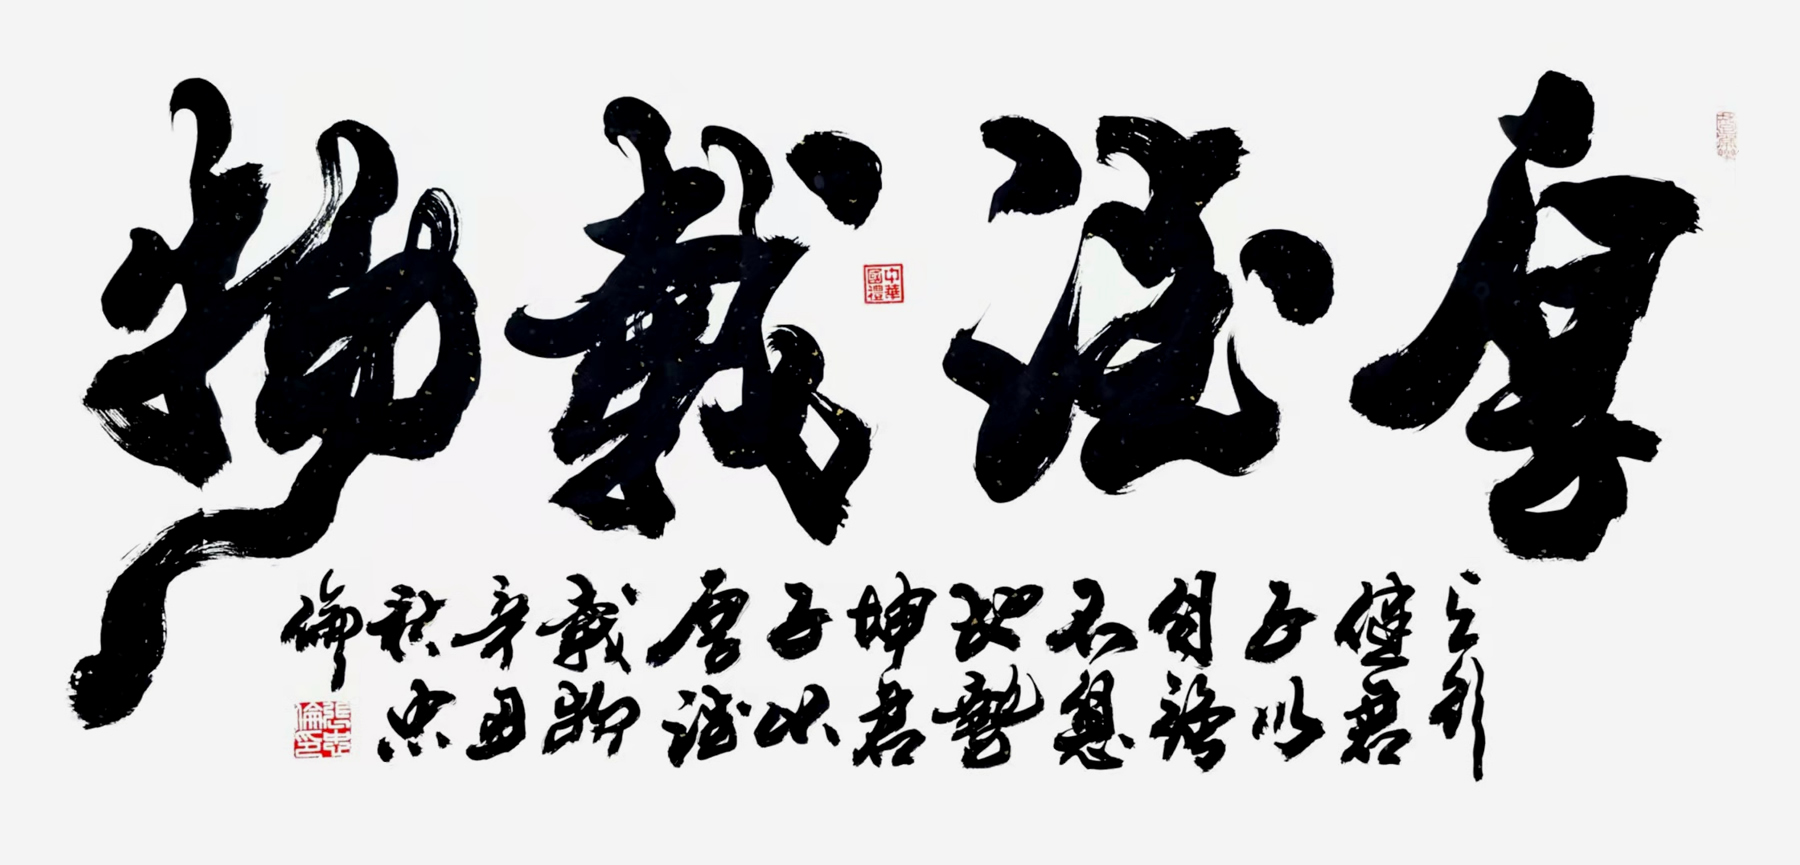 厚德載物
天行
健君
子以
自強
不息
地勢
坤君
子以
厚德
載物
辛丑
秋忠
倫
中華
國禮
張忠
倫印